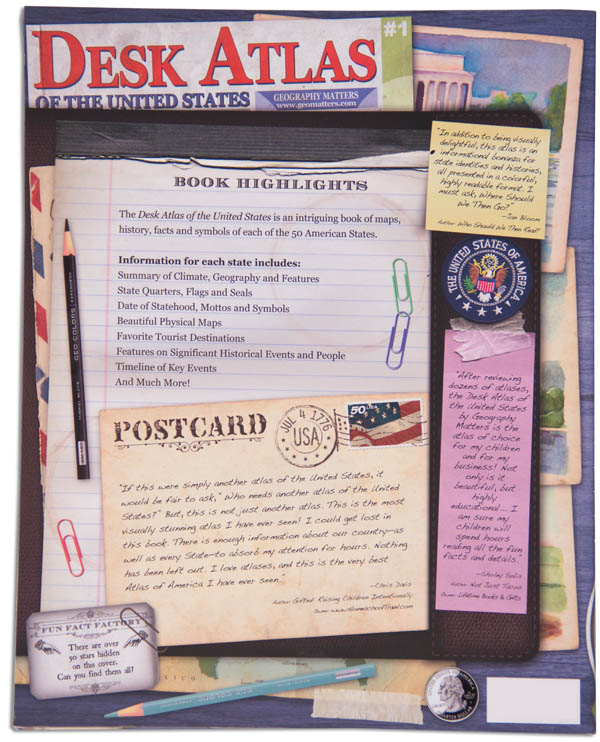 DESK ATLAS
#1
OF THE UNITED STATES
GEOGRAPHY MATTERS
www.geomatters.com
BOOK HIGHLIGHTS
The Desk Atlas of the United States is an intriguing book of maps,
history, facts and symbols of each of the 50 American States.
Information for each state includes:
Summary of Climate, Geography and Features
State Quarters, Flags and Seals
Date of Statehood, Mottos and Symbols
Beautiful Physical Maps
Favorite Tourist Destinations
Features on Significant Historical Events and People
Timeline of Key Events
And Much More!
"In addition to being visually
delightful, this atlas is an
informational bonanza for
state identities and histories,
all presented in a colorful,
highly readable format. I
must ask, Where Should
We Then Go?"
~Jan Bloom
Author: Who Should We Then Read?
THE UNITED STATES OF
AMERICA
"After reviewing
dozens of atlases,
the Desk Atlas of
the United States
by Geography
Matters is the
atlas of choice
for my children
and for my
business! Not
only is it
beautiful, but
highly
educational... I
am sure my
children will
spend hours
reading all the fun
facts and details."
~Shirley Solis
Author: Not Just Tacos
Owner: Lifetime Books & Gifts
POSTCARD
JUL 4 1776
USA
50
"If this were simply another atlas of the United States, it
would be fair to ask," Who needs another atlas of the United
States?" But, this is not just another atlas. This is the most
visually stunning atlas I have ever seen! I could get lost in
this book. There is enough information about our country—as
well as every State—to absorb my attention for hours. Nothing
has been left out. I love atlases, and this is the very best
Atlas of America I have ever seen."
~Chris Davis
Author: Gifted: Raising Children Intentionally
Owner: www.HomeschoolTrad.com
FUN FACT FACTORY
There are over
50 stars hidden
on this cover.
Can you find them all?
GEO-COLORS
MEXICO
QUARTER DOLLAR